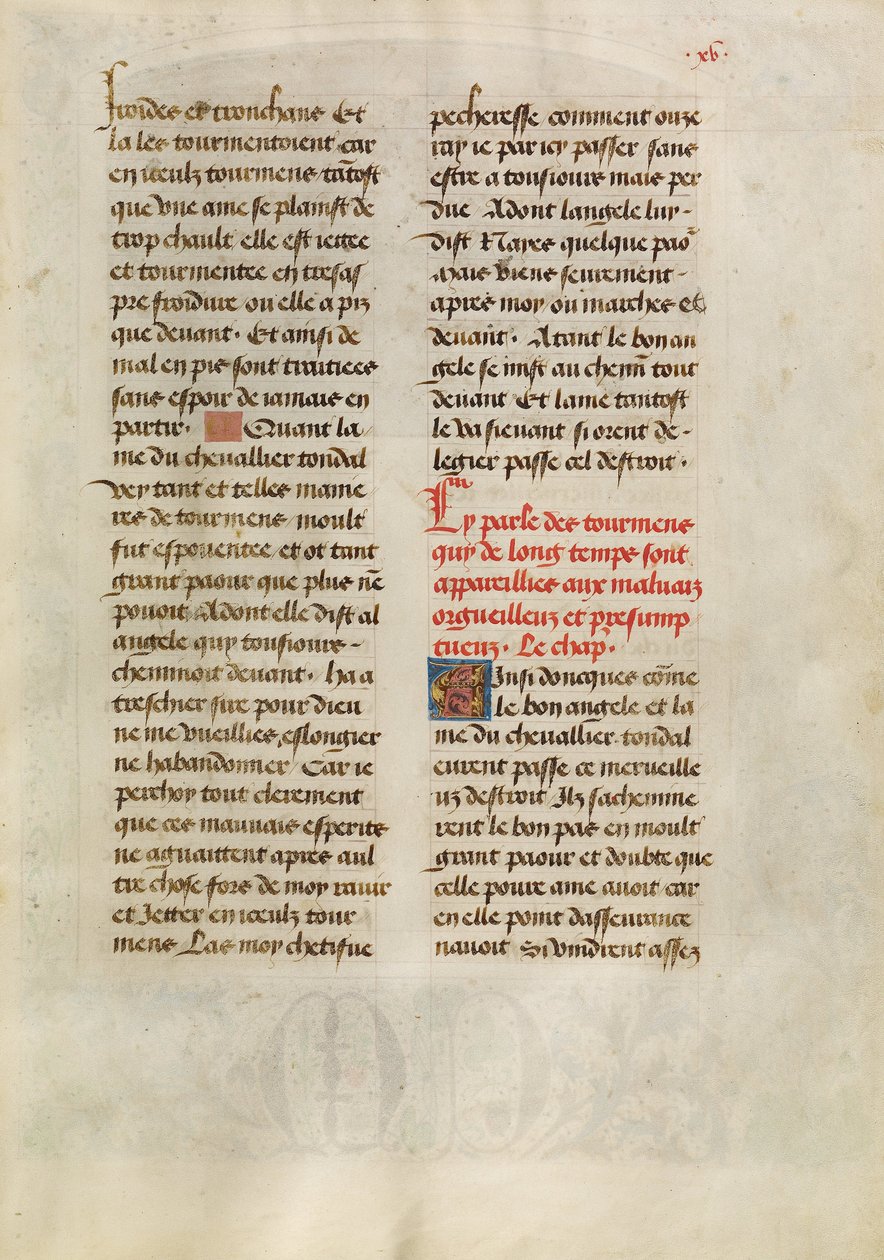 .xv.
froides et tronchans Et
la les tourmentoient car
en iceulz tourmens tātost
que vne ame se plainst de
trop chault elle est iettee
et tourmentee en tresas
pre froidure ou elle a piz
que deuant. Et ainsi de
mal en pis sont traitiees
sans espoir de iamais en
partir. Quant la
me du cheuallier tondal
vey tant et telles manie
res de tourmens moult
fut espouentee et ot tant
grant paour que plus nē
pouoit Adont elle dist al
angele quy tousiours
cheminoit deuant. ha a
treschier sire pour dieu
ne me vueillies eslongier
ne habandonner Car ie
perchoy tout clerement
que ces mauuais esperite
ne aguaittent apres aul
tre chose fors de moy rauir
et Jetter en iceulz tour
mens Las moy chetifue
pecheresse comment ouze
ray ie par icy passer sans
estre a tousiours mais per
due Adont langele luy
dist Nayes quelque paōr
Mais viens seurement
apres moy ou marches et
deuant. Atant le bon an
gele se mist au chemī tout
deuant Et lame tantost
le va sieuant si orent de
legier passe cel destroit.
Cy parle des tourmens
quy de long temps sont
appareillies aux maluaiz
orgueilleuz et presump
tueuz. Le chap. viii
Ainsi doncques cōme
le bon angele et la
me du cheuallier tondal
eurent passe ce merueille
uz destroit Ilz sachemine
rent le bon pas en moult
grant paour et doubte que
celle poure ame auoit car
en elle point dasseurance
nauoit Si vindrent assez